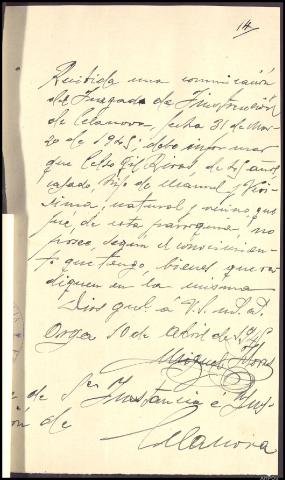 14.
Recibida una comunicación
del Juzgado de Instrucción
de Celanova, fecha 31 de Mar-
zo de 1945, debo informar
que Celso Gil Rivas, de 25 años,
casado, hijo de Manuel y
natural y vecino, que
fué, de esta parroquia, no
posee, según el conocimien-
to que tengo, bienes que ra-
diquen en la misma
Dios gue. á V.S. m. a.
10 de Abril de
Miguel
de Instancia é Ins-
ción de
Celanova